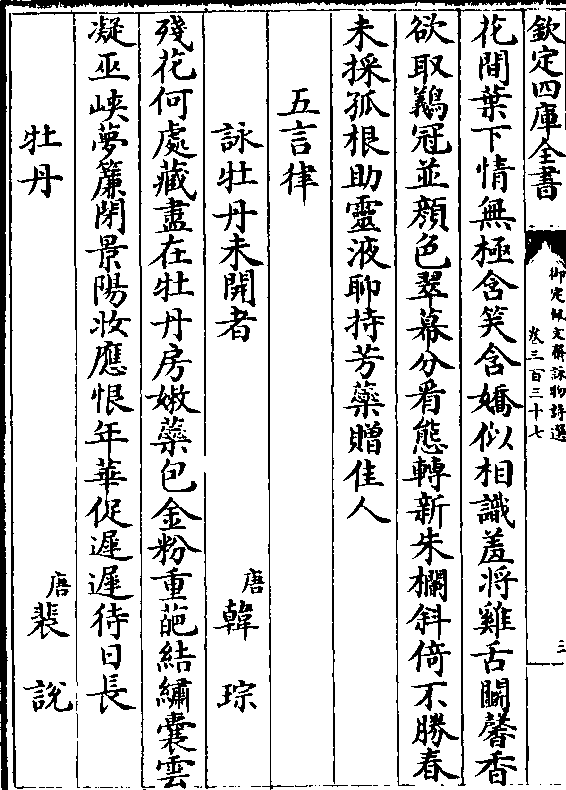 欽定四庫全書
御定佩文齋詠物詩選
卷三百三十七
三
花間葉下情無極含笑含嬌似相識羞將雞舌鬬馨香
欲取鷄冠並顔色翠幕分看態轉新朱欄斜倚不勝春
未採孤根助靈液聊持芳藥贈佳人
五言律
詠牡丹未開者
唐韓琮
殘花何處藏盡在牡丹房嫩蘂包金粉重葩結繡囊雲
凝巫峽夢簾閉景陽妝應恨年華促遲遲待日長
牡丹
唐裴説